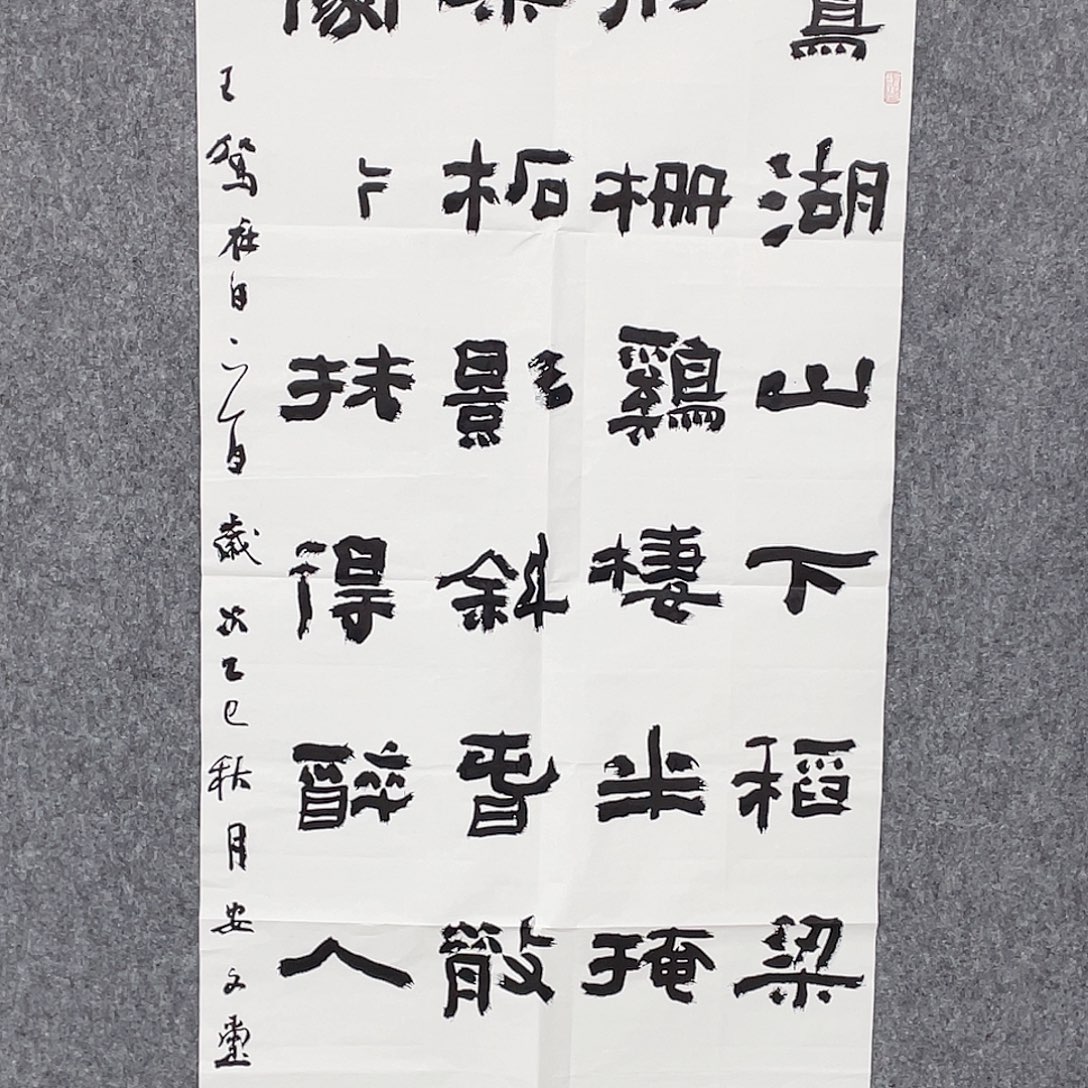 湖山下稻梁
栅鷄棲半掩
柘影斜旾散
〻扶得醉人
王駕社日一首 歲次乙巳秋月安文